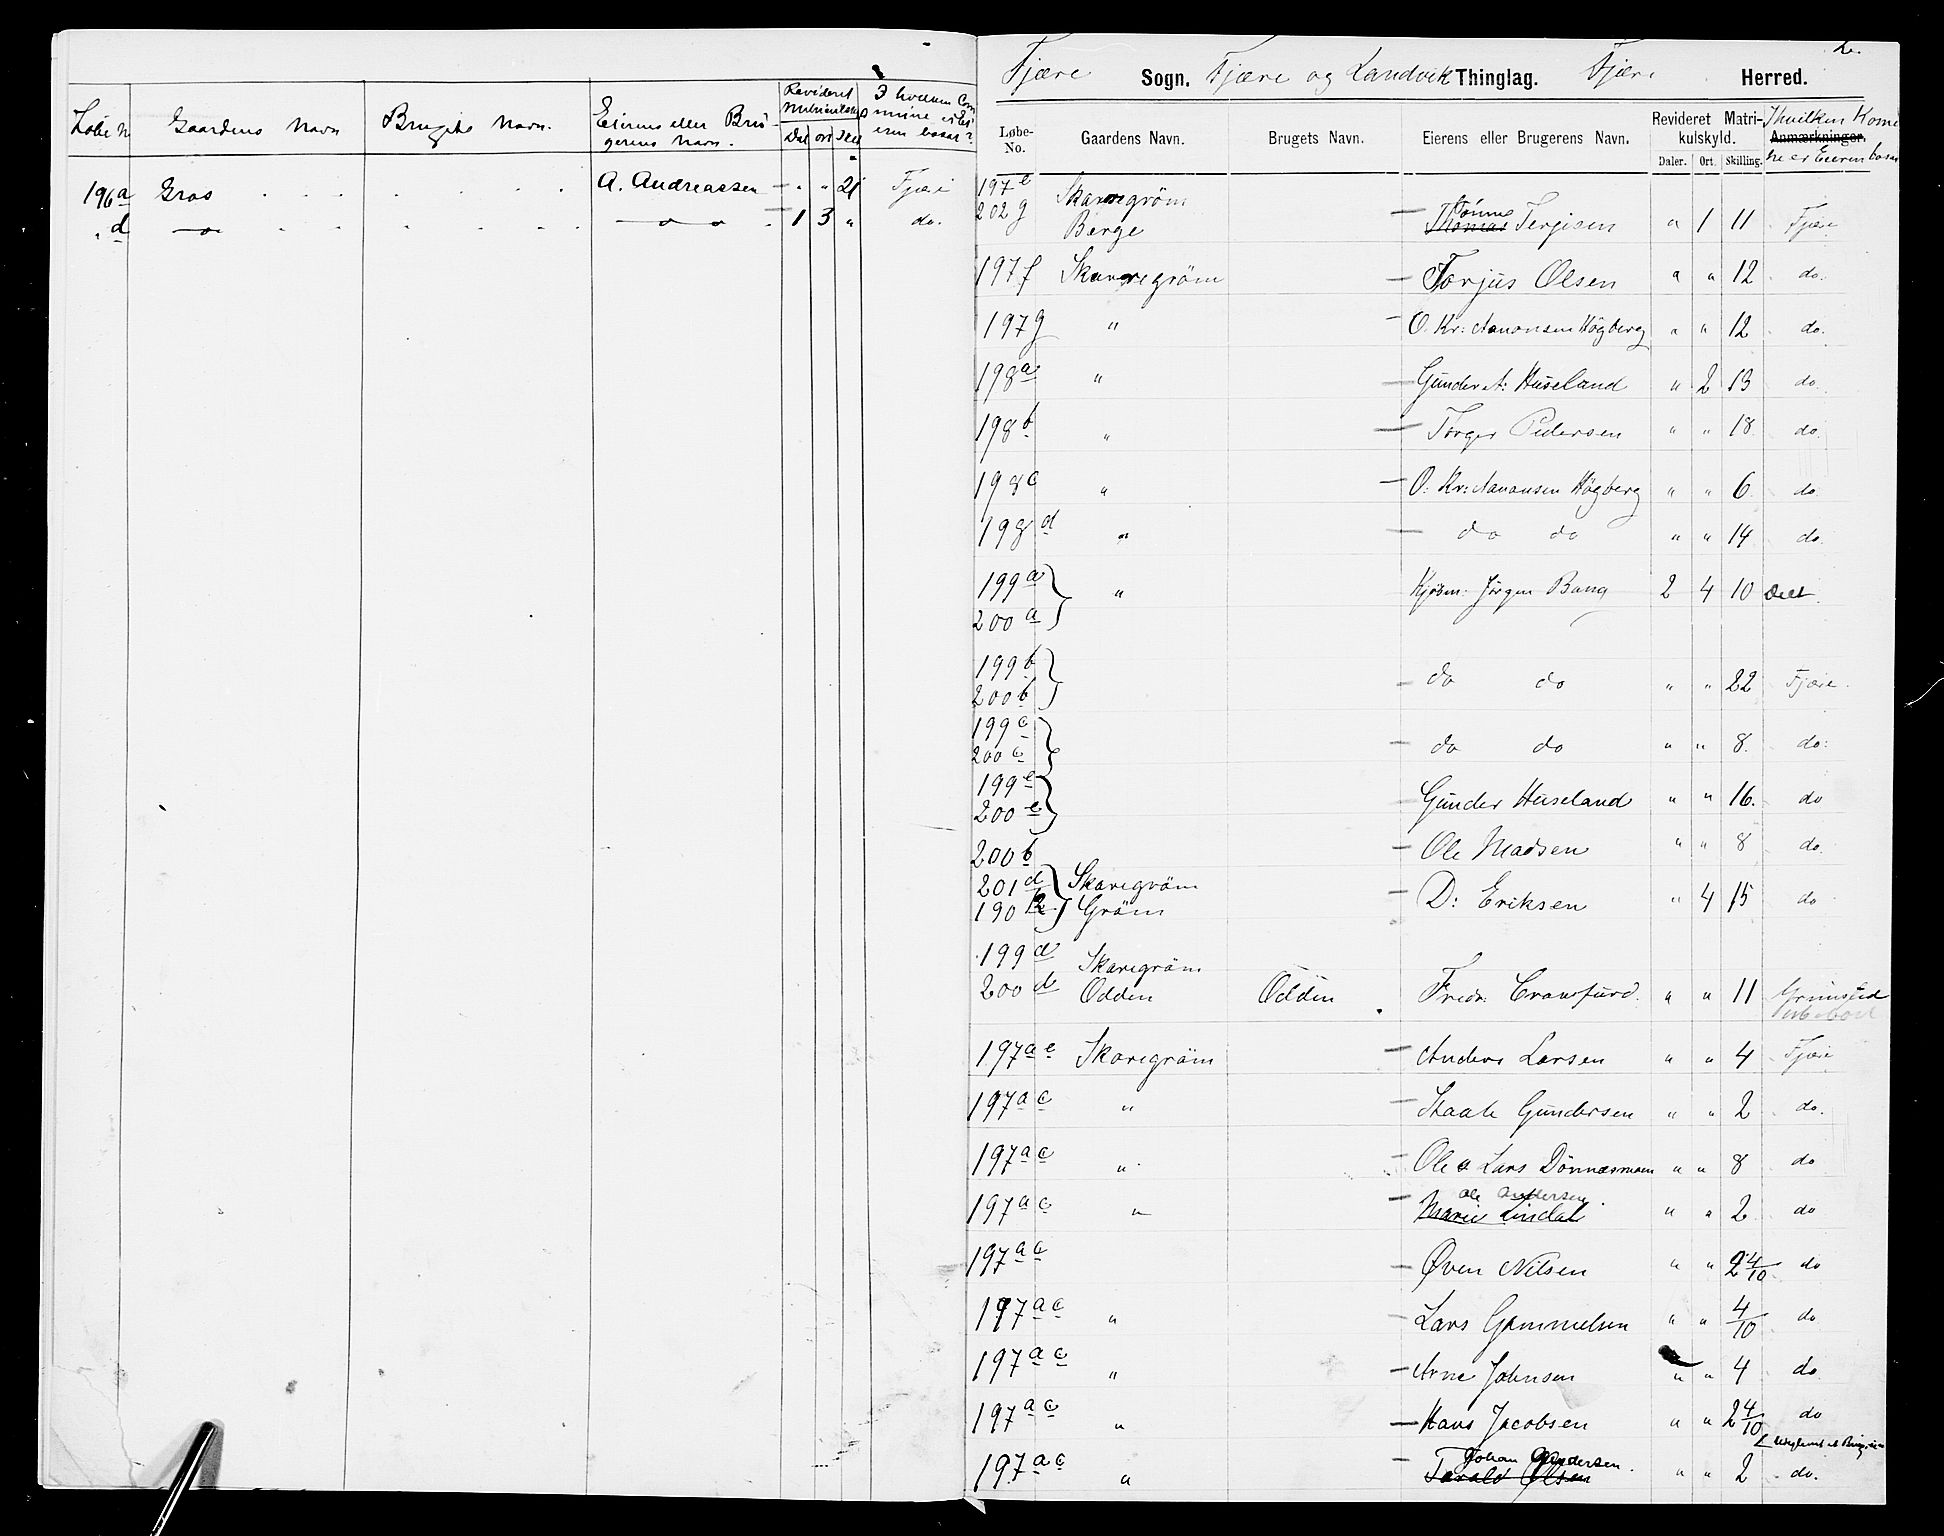 Løbe No Gaardens Navn Brugets Navn. Eierens eller Brugerens Navn. Revideret Matriculskyld Dal ort Skill I hvilken Commune er Eieren bosat?
196a Gros A. Andreassen " " 21 Fjære
" d —"— —o o 1 3 " do.
2.
Fjære Sogn. Fjære og Landvik Thinglag. Fjære Herred.
Løbe-No. Gaardens Navn. Brugets Navn. Eierens eller Brugerens Navn. Revideret Matrikulskyld. Daler. Ort. Skilling. Anmærkninger. I hvilken Komune er Eieren bosat
197e Skaregrøm
202g Berge Thomas Tønnes Terjesen " 1 11 Fjære
197f Skaregrøm Torjus Olsen " " 12 do.
197g " O. Kr: Aanonsen Høgberg " " 12 do.
198a " Gunder A: Huseland " 2 13 do.
198b " Torger Pedersen " " 18 do.
198c " O. Kr: Aanonsen Høgberg " " 6 do.
198d " do do " " 14 do.
199a
200a " Kjøbm: Jørgen Bang 2 4 10 Delt
199b
200b do do " " 22 Fjære.
199c
200c do do " " 8. do:
199e
200e Gunder Huseland " " 16. do
200b Ole Madsen " " 8 do.
201d Skaregrøm
190 Grøm D: Eriksen " 4 15 do
199d Skaregrøm
200d Odden Odden Fredr. Crawfurd. " " 11 Grimstad
197ae Skaregrøm Anders Larsen " " 4 Fjære
197ac " Staale Gundersen " " 2 do.
197ac " Ole & Lars Dønnesmoen " " 8 do
197ac " Marie Lindal Ole Andersen " " 2 do
197ac Øven Nilsen " " 2 4/10 do
197ac " Lars Gammelsen " " 4/10 do
197ac " Arne Johnsen " " 4 do
197ac " Hans Jacobsen " " 2 4/10 do
197ac " Tarald Olsen Johan Andersen. " " 2 do.